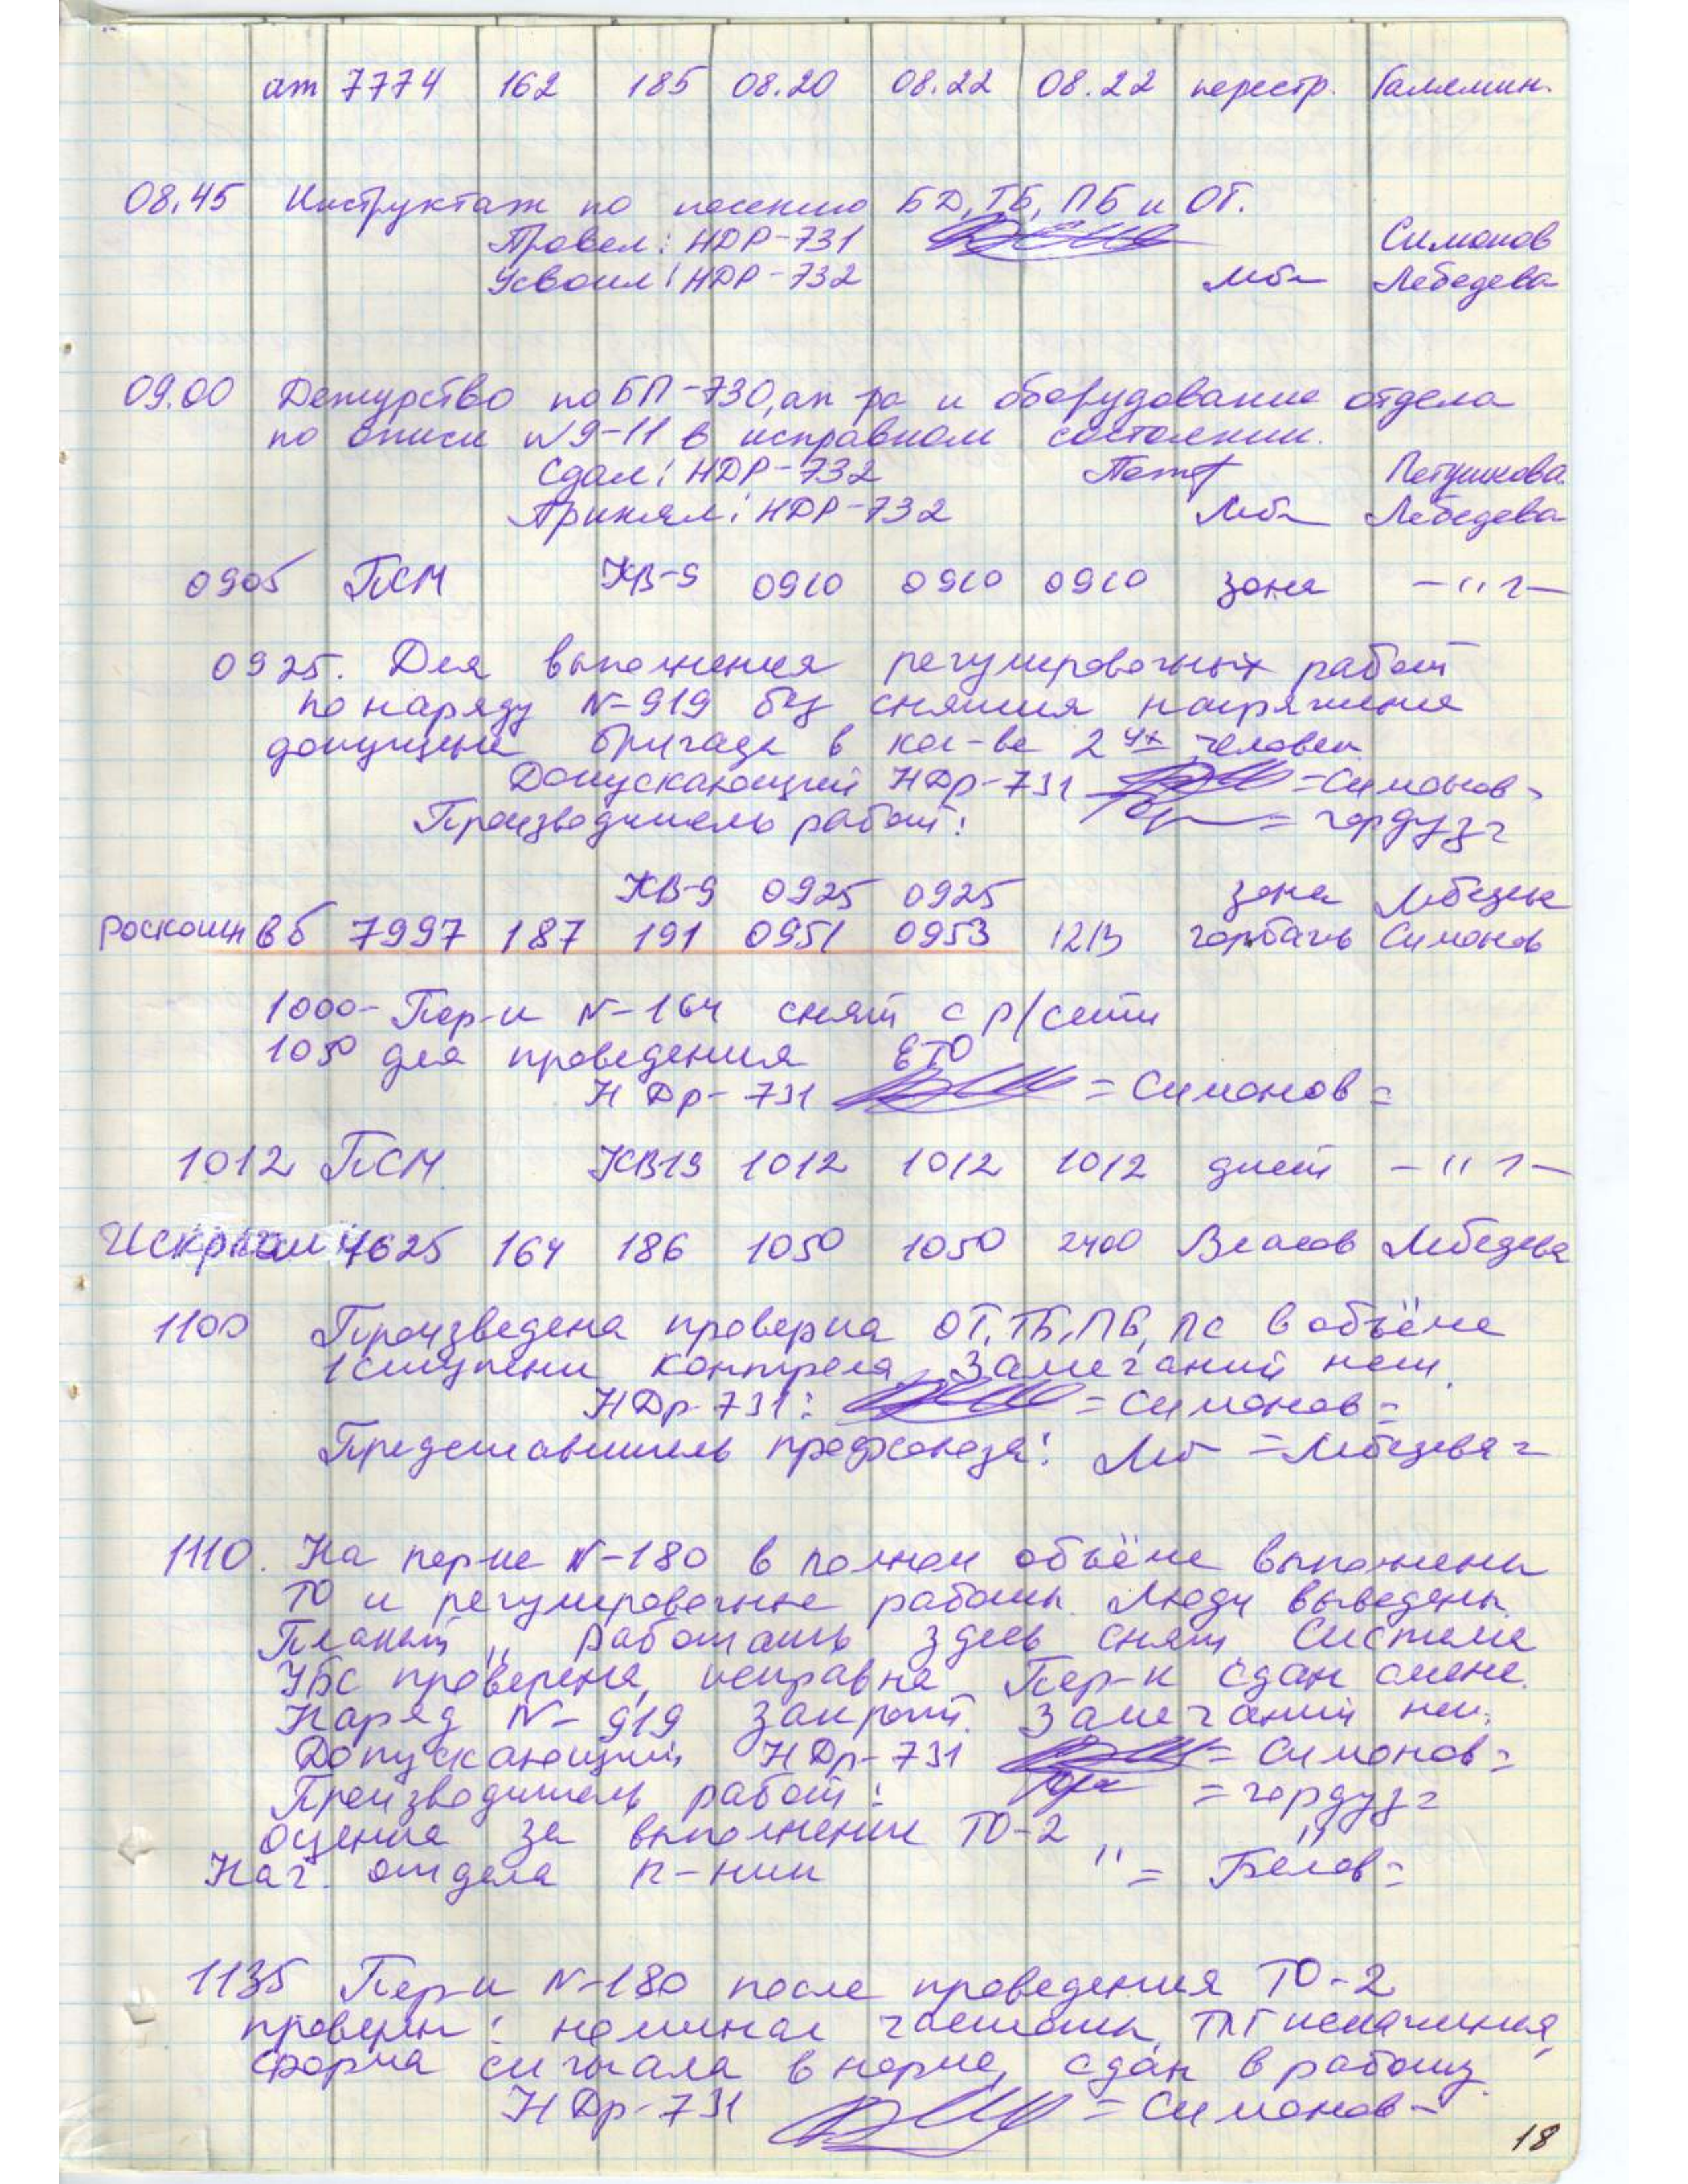 ат 7774 162 185 08.20 08.22 08.22 перестр. Галямин.
08.45 Инструктаж по несению БД, ТБ, ПБ и ОТ.
Провел: НДР-731 Симонов
Усвоил: НДР-732 Леб Лебедева
09.00 Дежурство по БП-730, ап ра и оборудование отдела
по описи №9-11 в исправном состоянии.
Сдал: НДР-732 Петушкова
Принял: НДР-732 Леб Лебедева
0905 ПСМ КВ-9 0910 0910 0910 зона -"-
0925. Для выполнения регулировочных работ
по наряду №-919 без снятия напряжения
допущена бригада в кол-ве 2ух человек
Допускающий НДр-731 =Симонов=
Производитель работ: =Гордуз=
КВ-9 0925 0925 зона Лебедева
Роскошн вб 7997 187 191 0951 0953 1213 Горбачев Симонов
1000- Пер-к №-164 снят с р/сети
1050 для проведения ЕТО
НДр-731 =Симонов=
1012 ПСМ КВ19 1012 1012 1012 днем -"-
Искр 7625 164 186 1050 1050 2400 Власов Лебедева
1100 Произведена проверка ОТ, ТБ, ПБ, ПС в объёме
1 ступени контроля, Замечаний нет.
НДр-731: =Симонов=
Представитель профсоюза: Леб =Лебедева=
1110. На пер-ке №-180 в полном объёме выполнены
ТО и регулировочные работы. Люди выведены.
Плакат "Работать здесь снят Система
УБС проверена, исправна Пер-к сдан смене.
Наряд №-919 закрыт. Замечаний нет.
Допускающий НДр-731 =Симонов=
Производитель работ: =Гордуз=
Оценка за выполнение ТО-2 "
Нач. отдела п-нии " =Белов=
1135 Пер-к №-180 после проведения ТО-2
проверен: номинал частоты, ТЛГ искажения,
форма сигнала в норме, сдан в работу.
НДр-731 =Симонов=
18